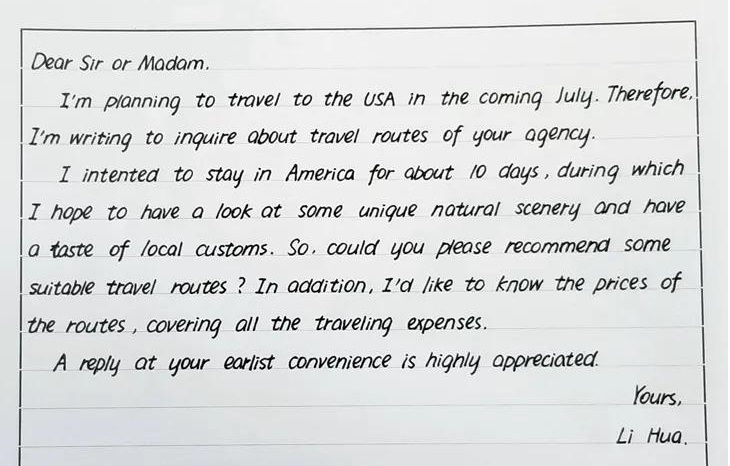 Dear Sir or Madam.
I'm planning to travel to the USA in the coming July. Therefore,
I'm writing to inquire about travel routes of your agency.
I intented to stay in America for about 10 days, during which
I hope to have a look at some unique natural scenery and have
a taste of local customs. So, could you please recommend some
suitable travel routes? In addition, I'd like to know the prices of
the routes, covering all the traveling expenses.
A reply at your earlist convenience is highly appreciated.
Yours,
Li Hua.